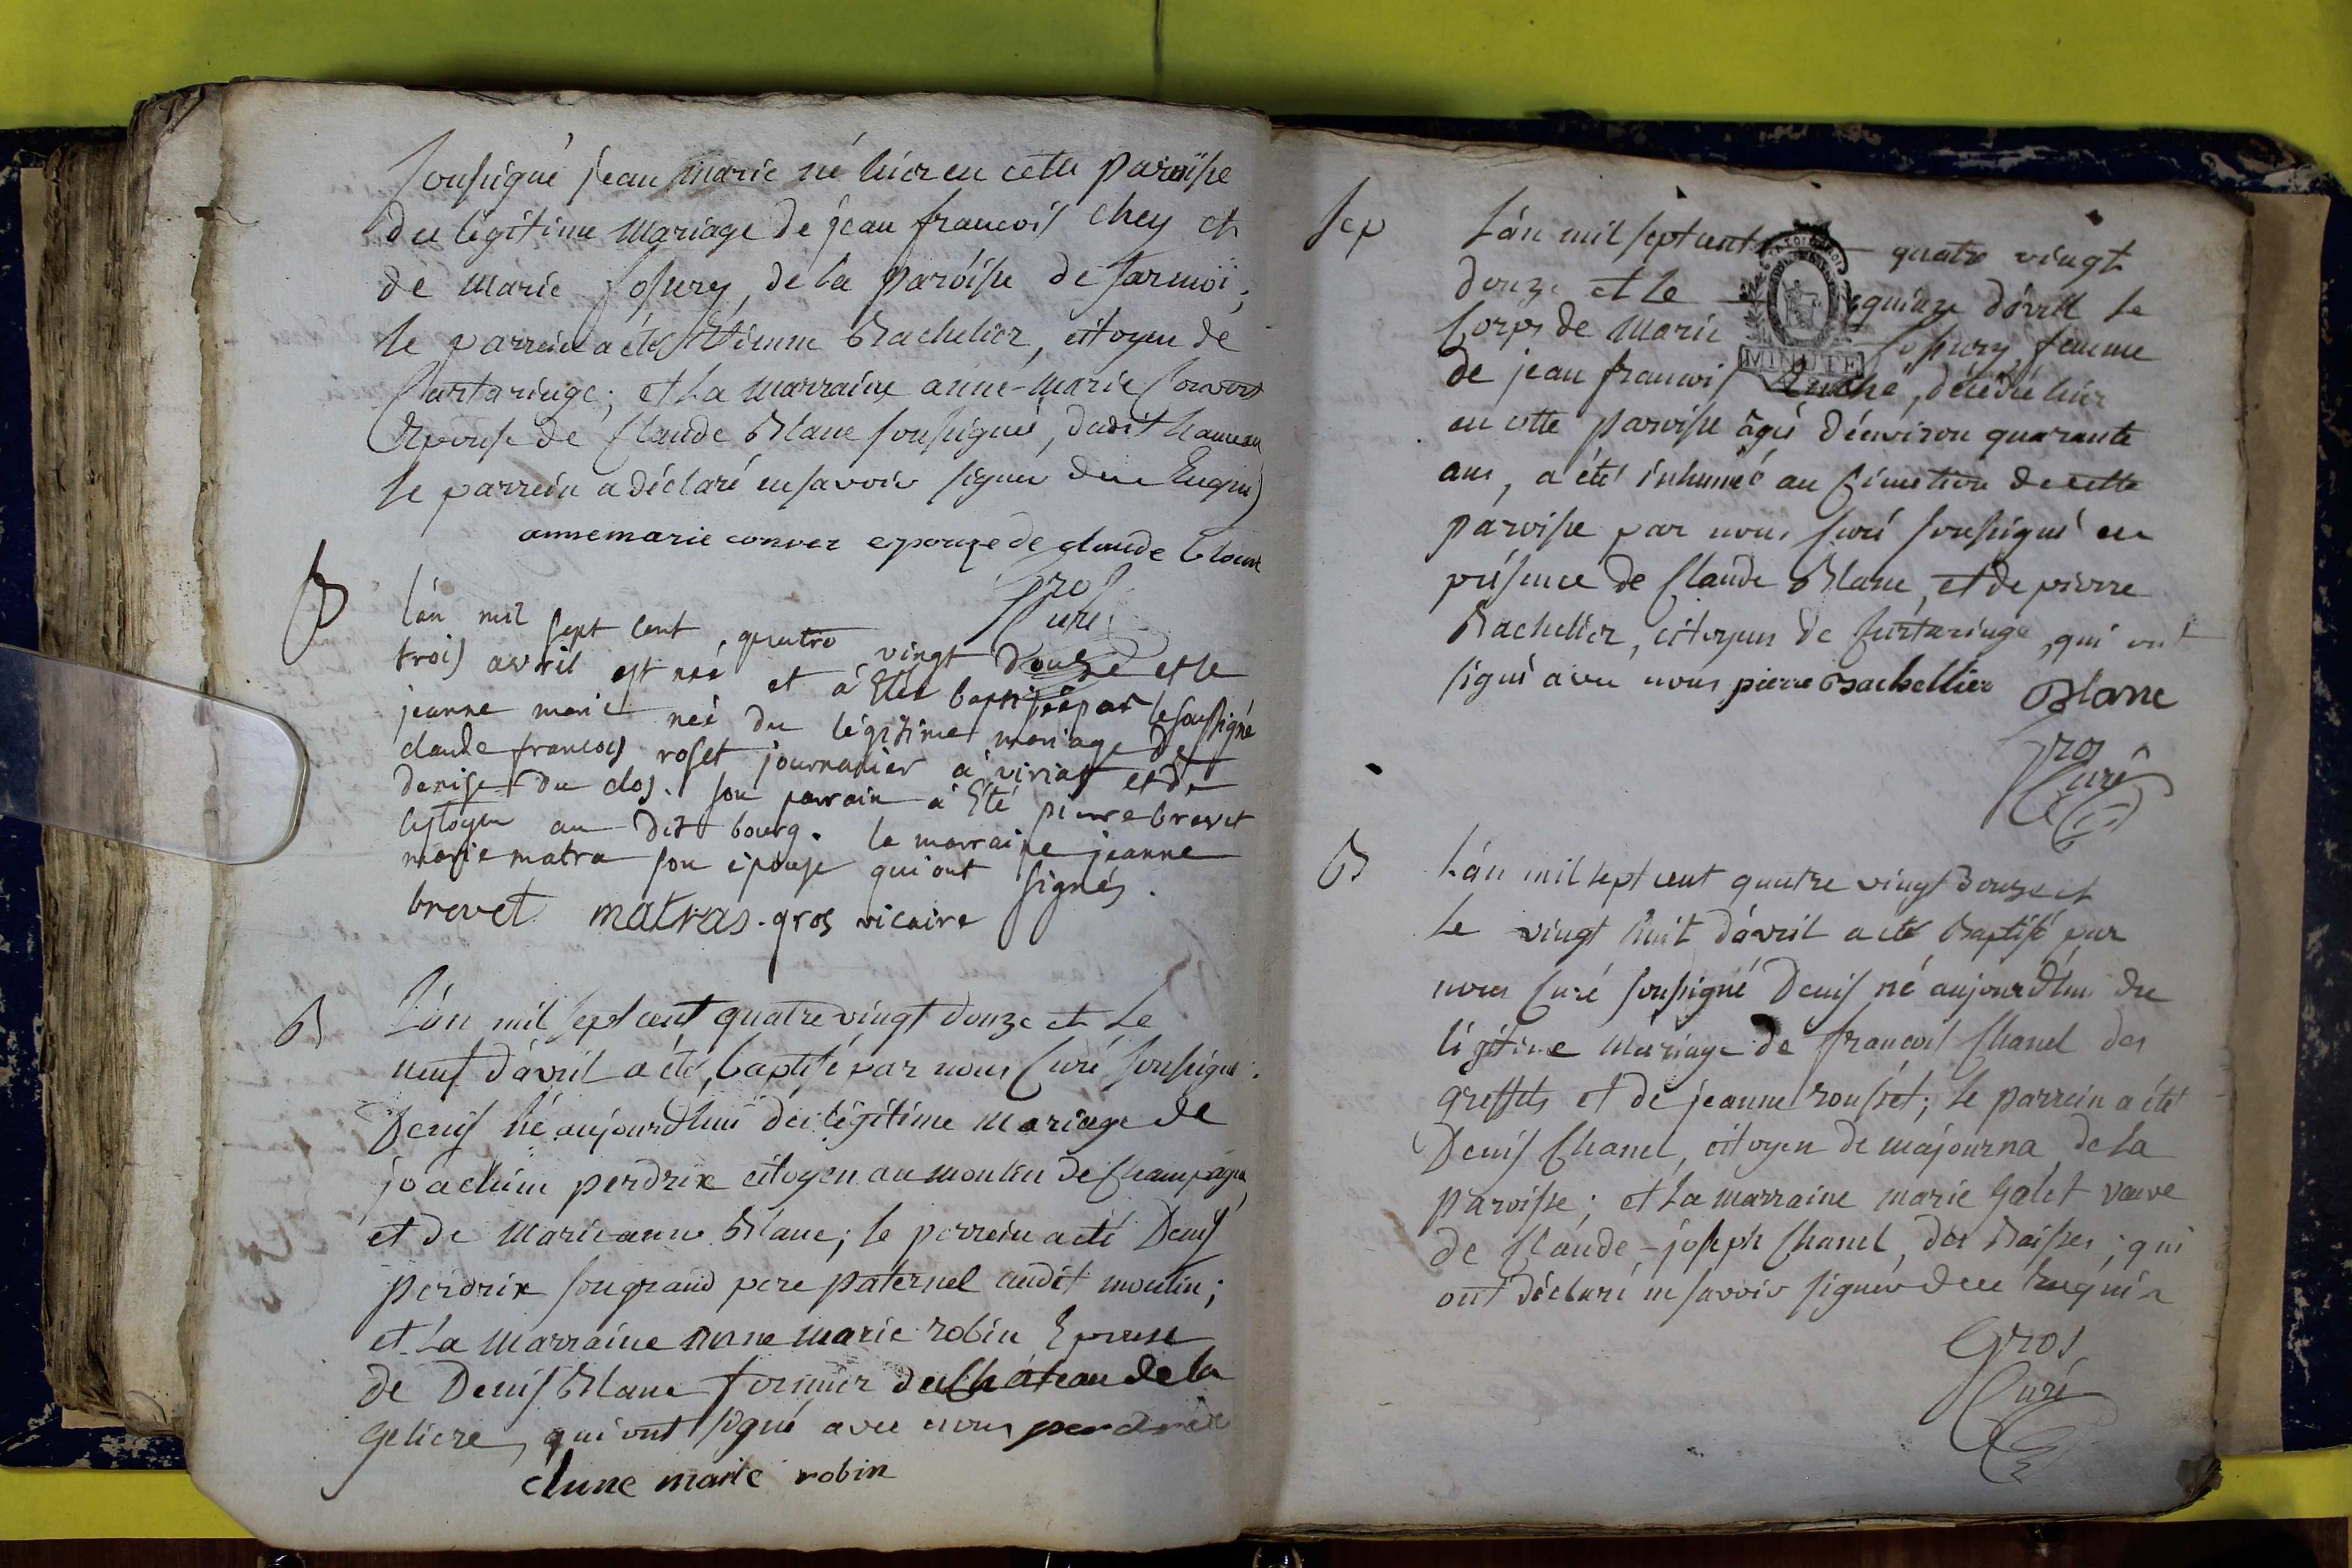 soussigné jean marie né hier en cette paroisse
du légitime mariage de jean francois chey et
de marie de la paroisse de jarmoï;
le parrein a été Etienne Bachelier, citoyen de
Curtaringe; et la marraine anne-marie Convert
Epouse de Claude Blanc soussignée, dudit hameau
le parrein a déclaré ne savoir signer de ce Enquis
annemarie conver epouze de claude blanc
gros
Curé
B
l'an mil sept cent quatre vingt douze et le
trois avril est née et à Eté baptisée par le soussigné
jeanne marie née du légitime mariage de
claude francois roset journalier à viriat et de
denise du clos. son parrain à Eté pierre brevet
citoyen au dit bourg. la marraine jeanne
marie matra son épouse qui ont signés.
brevet matras. gros vicaire
B
L'an mil sept cent quatre vingt douze et le
neuf d'avril a été baptisé par nous Curé soussigné
Denis né aujourdhui du légitime mariage de
joachim perdrix citoyen au moulin de Champagne
et de Marieanne Blanc; le parrein a été Denis
perdrix son grand pere paternel audit moulin;
et la marraine anne marie robin Epouse
de Denis Blanc fermier du Château de la
geliere, qui ont signé avec nous perdrix
Anne marie robin
Sep
L'an mil sept cent quatre vingt
douze et le quinze d'avril le
Corps de Marie femme
MINUTE
de jean francois décédée hier
en cette paroisse agée d'environ quarante
ans, a été inhumée au Cimetiere de cette
paroisse par nous Curé soussigné en
présence de Claude Blanc, et de pierre
Bachelier, citoyens de Curtaringe, qui ont
signé avec nous pierre Bachellier Blanc
gros
Curé
B
L'an mil sept cent quatre vingt douze et
le vingt huit d'avril a été Baptisé par
nous Curé soussigné Denis né aujourdhui du
légitime mariage de francois Chanel des
greffets et de jeanne rousset; le parrein a été
Denis Chanel, citoyen de majourna de la
paroisse; et la marraine marie galet veuve
de Claude-joseph Chanel, des Baisses; qui
ont déclaré ne savoir signer de ce Enquis
Gros
Curé